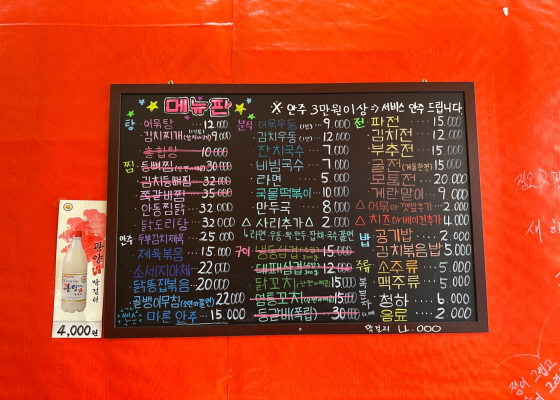 메뉴판
※ 안주 3만원이상 → 서비스 안주 드립니다
탕
어묵탕 ... 12,000
김치찌개 ... 9,000
홍합탕 ... 10,000
찜
등뼈찜 30,000
김치등뼈찜 ... 32,000
쪽갈비찜 ... 35,000
안동찜닭 ... 32,000
닭도리탕 ... 32,000
안주
두부김치제육 ... 25,000
제육볶음 ... 15,000
소세지야채 22,000
닭똥집볶음 ... 20,000
골뱅이무침 22,000
마른 안주 ... 15,000
분식
어묵우동 9,000
김치우동 12,000
잔치국수 7,000
비빔국수 7,000
라면 ... 5,000
국물떡볶이 ... 10,000
만두국 ... 8,000
△ 사리추가 △ 2,000
구이
냉동삼겹 15,000
대패삼겹 15,000
닭꼬치 15,000
염통꼬치 15,000
등갈비(폭립) ... 30,000
전
파전 ... 15,000
김치전 ... 12,000
부추전 ... 15,000
굴전(겨울한정) 15,000
모듬전 ... 20,000
계란말이 ... 9,000
△ 2,000
△ 치즈 4,000
밥
공기밥 ... 2,000
김치볶음밥 5,000
주류
소주류 ... 5,000
맥주류 ... 5,000
청하 ... 6,000
음료 ... 2,000
막걸리 4,000
광양
막걸리
4,000원